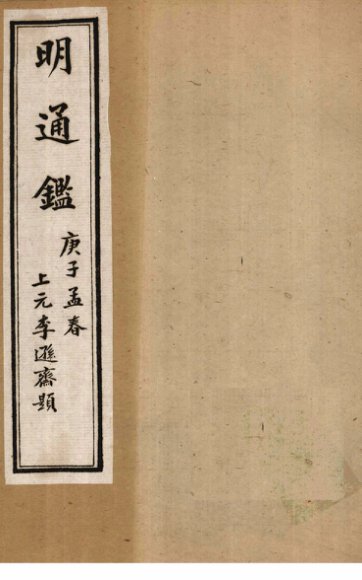 明通鑑
庚子孟春
上元李遜齋題